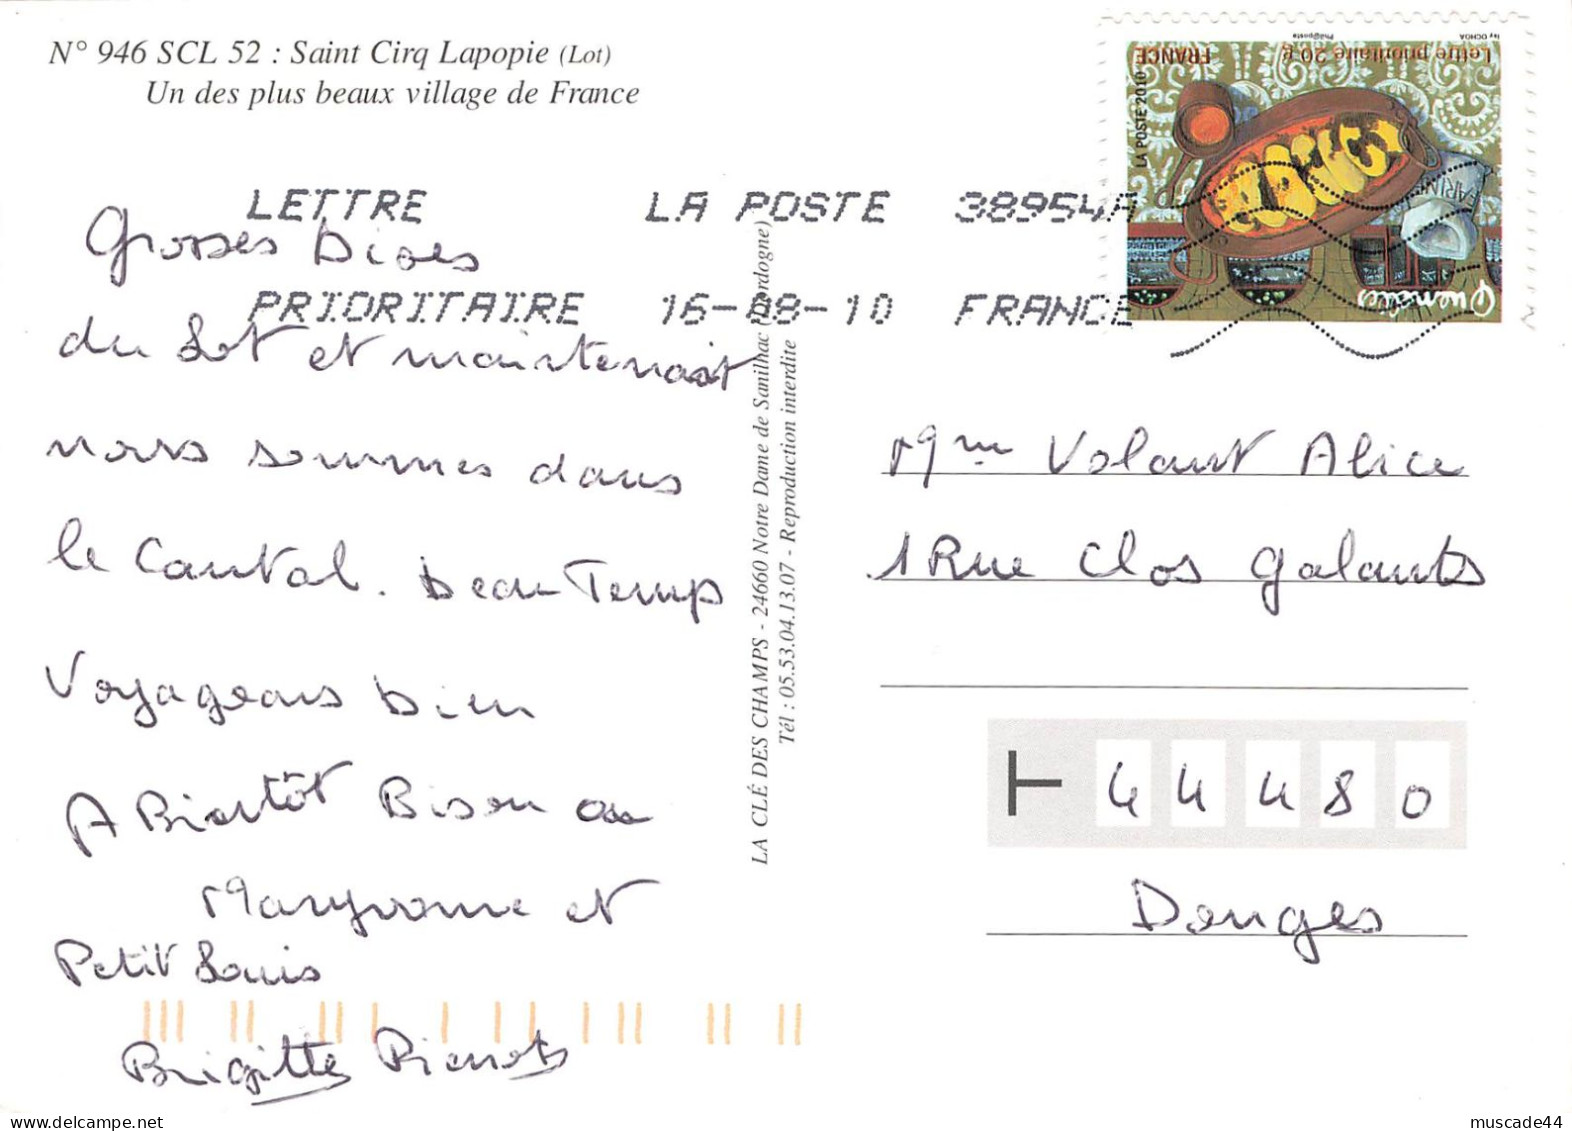 N° 946 SCL 52 : Saint Cirq Lapopie (Lot)
Un des plus beaux village de France
LETTRE LA POSTE 38954A
PRIORITAIRE 16-08-10 FRANCE
Lettre prioritaire 20 g FRANCE
Phil@poste
Isy OCHOA
LA POSTE 2010
FARINE
Quenelles
Grosses Bises
du Lot et maintenant
nous sommes dans
le Cantal. beau Temps
Voyageons bien
A Bientôt Bisou au
Maryvonne et
Petit Louis
Brigitte Pierrot
LA CLÉ DES CHAMPS - 24660 Notre Dame de Sanilhac (Dordogne)
Tél : 05.53.04.13.07 - Reproduction interdite
Mme Volant Alice
1 Rue Clos Galants
44480
Donges
muscade44